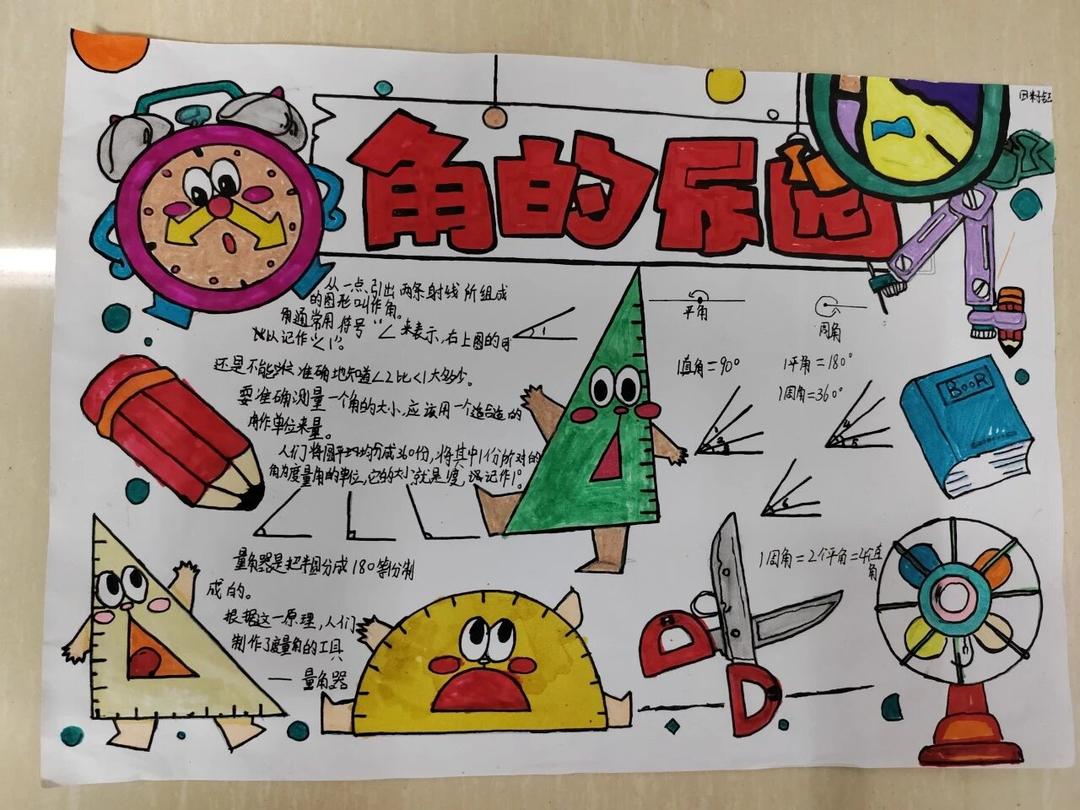 角的乐园
从一点引出两条射线所组成
的图形叫作角。
角通常用符号"∠"来表示,右上图的
以记作"∠1"。
1
还是不能准确地知道∠2比∠1大多少。
要准确测量一个角的大小,应该用一个适合适的
角作单位来量。
人们将圆平均分成360份,将其中1份所对的
角为度量角的单位,它的大小就是1度,记作1°。
量角器是把半圆分成180等分制
成的。
根据这一原理,人们
制作了度量角的工具
— 量角器
平角
周角
1直角=90°
1平角=180°
1周角=360°
1周角=2个平角=4个直
角
BOOK